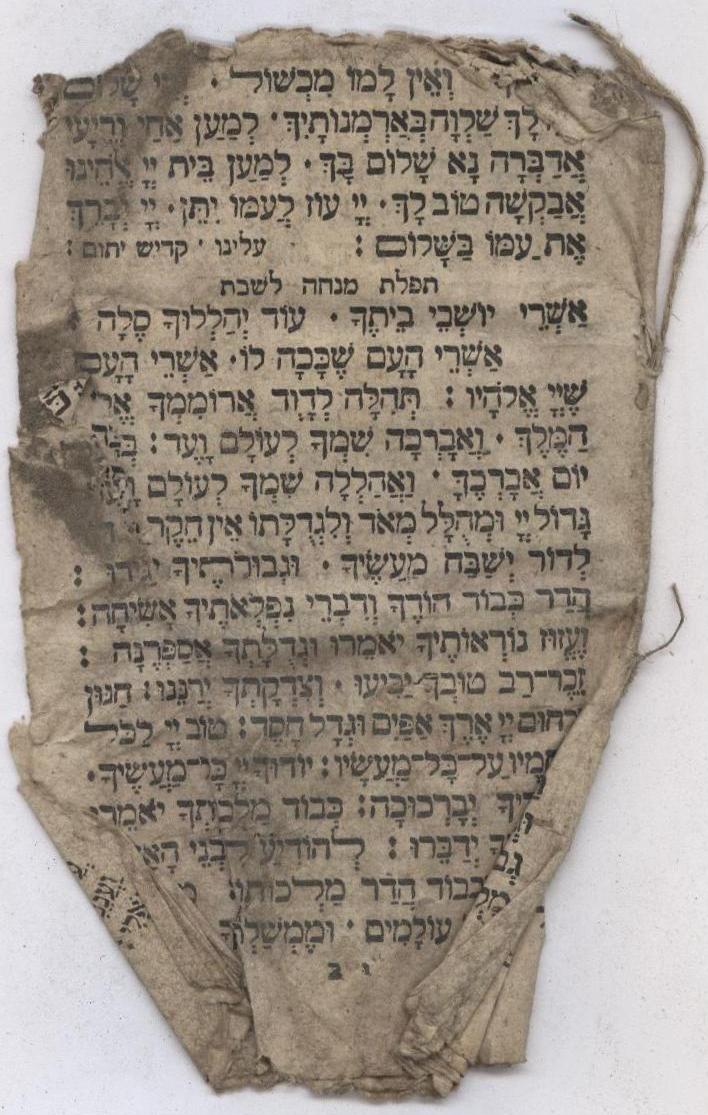 וְאֵין לָמוֹ מִכְשׁוֹל ׃ יְהִי שָׁלוֹם
לָךְ שַׁלְוָה בְּאַרְמְנוֹתָיִךְ ׃ לְמַעַן אַחַי וְרֵעָי
אֲדַבְּרָה נָא שָׁלוֹם בָּךְ ׃ לְמַעַן בֵּית יְיָ אֱלֹהֵינוּ
אֲבַקְשָׁה טוֹב לָךְ ׃ יְיָ עוֹז לְעַמּוֹ יִתֵּן ׃ יְיָ יְבָרֵךְ
אֶת עַמּוֹ בַּשָּׁלוֹם : עלינו ׃ קדיש יתום :
תפלת מנחה לשבת
אַשְׁרֵי יוֹשְׁבֵי בֵיתֶךָ ׃ עוֹד יְהַלְלוּךָ סֶלָה
אַשְׁרֵי הָעָם שֶׁכָּכָה לּוֹ ׃ אַשְׁרֵי הָעָם
שֶׁיְיָ אֱלֹהָיו : תְּהִלָּה לְדָוִד אֲרוֹמִמְךָ
הַמֶּלֶךְ ׃ וַאֲבָרְכָה שִׁמְךָ לְעוֹלָם וָעֶד :
יוֹם אֲבָרְכֶךָּ ׃ וַאֲהַלְלָה שִׁמְךָ לְעוֹלָם
גָּדוֹל יְיָ וּמְהֻלָּל מְאֹד וְלִגְדֻלָּתוֹ אֵין חֵקֶר
לְדוֹר יְשַׁבַּח מַעֲשֶׂיךָ ׃ וּגְבוּרֹתֶיךָ יַגִּידוּ :
הֲדַר כְּבוֹד הוֹדֶךָ וְדִבְרֵי נִפְלְאֹתֶיךָ אָשִׂיחָה :
וֶעֱזוּז נוֹרְאוֹתֶיךָ יֹאמֵרוּ וּגְדֻלָּתְךָ אֲסַפְּרֶנָּה :
זֵכֶר־רַב טוּבְךָ יַבִּיעוּ ׃ וְצִדְקָתְךָ יְרַנֵּנוּ : חַנּוּן
וְרַחוּם יְיָ אֶרֶךְ אַפַּיִם וּגְדָל חָסֶד : טוֹב יְיָ לַכֹּל
עַל־כָּל־מַעֲשָׂיו : יוֹדוּךָ יְיָ כָּל־מַעֲשֶׂיךָ ׃
יְבָרְכוּכָה : כְּבוֹד מַלְכוּתְךָ יֹאמֵרוּ
יְדַבֵּרוּ : לְהוֹדִיעַ לִבְנֵי
וּכְבוֹד הֲדַר מַלְכוּתוֹ
עוֹלָמִים ׃ וּמֶמְשַׁלְתְּךָ
י ב